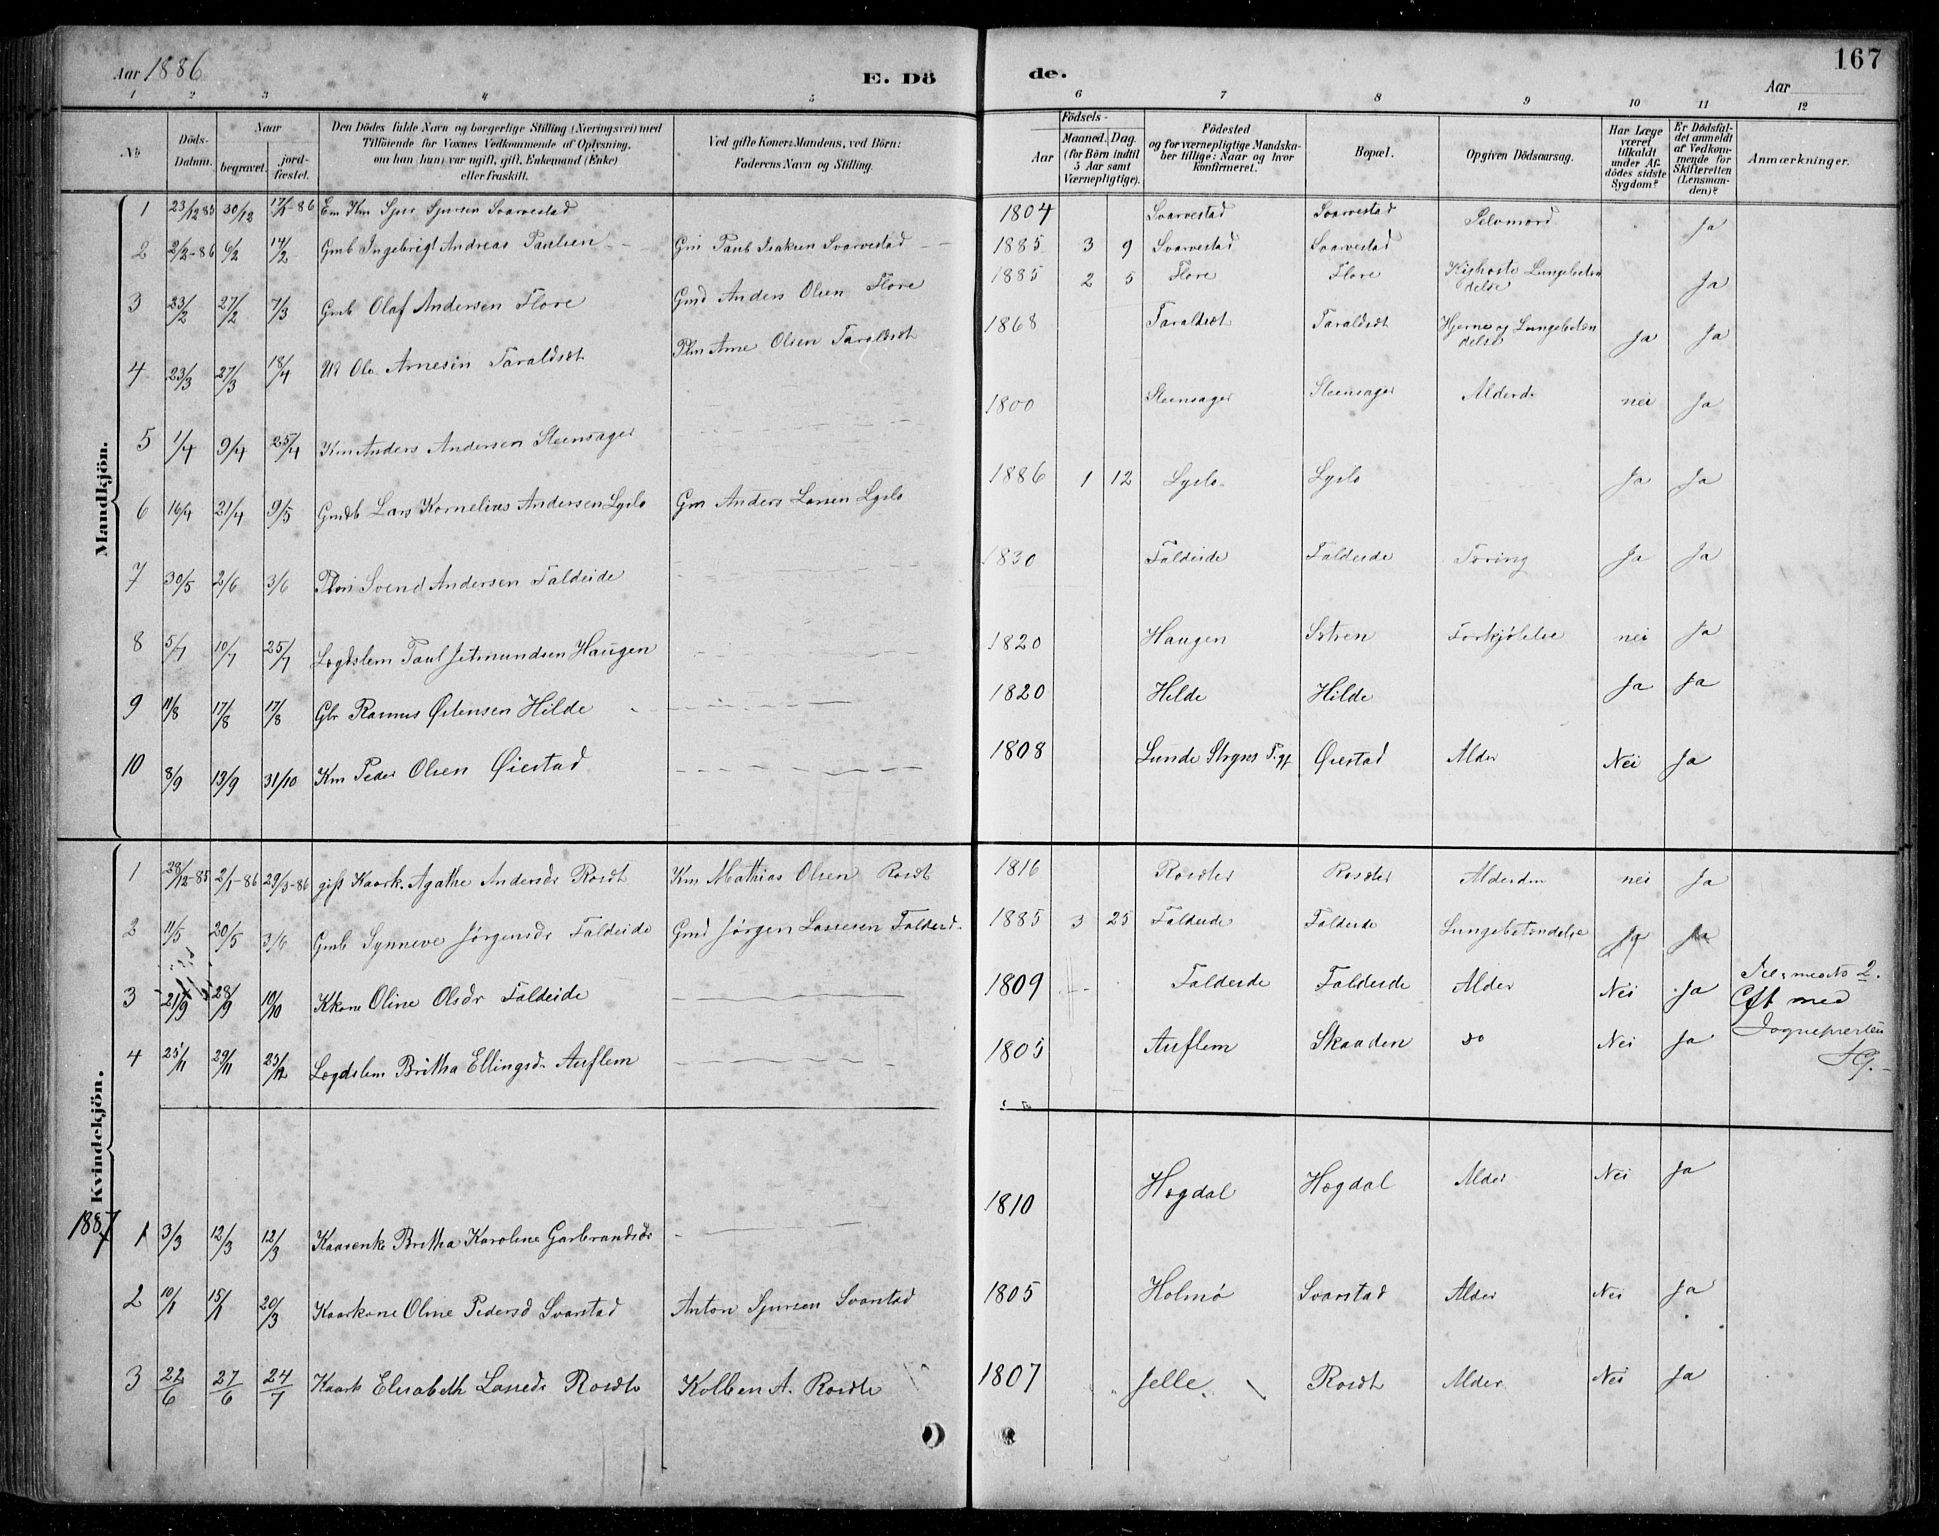 Aar 1886
E. Dö
de.
Aar
167
1 2 3 4 5 6 7 8 9 10 11 12
No
Döds-Datum.
Naar
begravet.
jord-fæstet.
Den Dödes fulde Navn og borgerlige Stilling (Næringsvei) med
Tilföiende for Voxnes Vedkommende af Oplysning,
om han (hun) var ugift, gift, Enkemand (Enke)
eller fraskilt.
Ved gifte Koner: Mandens, ved Börn:
Faderens Navn og Stilling.
Födsels-
Aar
Maaned. Dag.
(for Börn indtil
5 Aar samt
Værnepligtige).
Födested
og for værnepligtige Mandska-
ber tillige: Naar og hvor
konfirmeret.
Bopæl.
Opgiven Dödsaarsag.
Har Læge
været
tilkaldt
under Af-
dödes sidste
Sygdom?
Er Dödsfal-
det anmeldt
af Vedkom-
mende for
Skifteretten
(Lensman-
den)?
Anmærkninger.
Mandkjön.
1 23/12 85 30/12 17/1-86 Em Km Sjur Sjursen Svarvestad 1804 Svarvestad Svarvestad Selvmord Ja
2 2/2-86 6/2 14/2 Gmb Ingebrigt Andreas Paulsen Gm Paul Isaksen Svarvestad 1885 3 9 Svarvestad Svarvestad
3 23/2 27/2 7/3 Gmb Olaf Andersen Flore Gmd Anders Olsen Flore 1885 2 5 Flore Flore Kighoste Lungebetæn
delse Ja
4 23/3 27/3 18/4 Ole Arnesen Taraldset Plm Arne Olsen Taraldset 1868 Taraldset Taraldset Hjerne og Lungebetæn
delse Ja Ja
5 1/4 9/4 25/4 Km Anders Andersen Steensager 1800 Steensager Steensager Alderd nei Ja
6 16/4 21/4 9/5 Gmdb Lars Kornelius Andersen Lyslo Gm Anders Larsen Lyslo 1886 1 12 Lyslo Lyslo Ja Ja
7 30/5 2/6 3/6 Svend Andersen Faldeide 1830 Faldeide Faldeide Tæring Ja Ja
8 5/7 10/7 25/7 Lægdslem Paul Jetmundsen Haugen 1820 Haugen Sætren Forkjølelse nei Ja
9 11/8 17/8 17/8 Gbr Rasmus Østensen Hilde 1820 Hilde Hilde Ja Ja
10 8/9 13/9 31/10 Km Peder Olsen Øiestad 1808 Lunde Stryns Pgf Øiestad Alder Nei Ja
Kvindekjön.
1 28/12-85 2/1-86 29/3-86 gift Kaark. Agathe Andersdr Rosdt Km Mathias Olsen Rosdt 1816 Alderdm nei Ja
2 11/5 20/5 3/6 Gmb Synneve Jørgensdr Faldeide Gmd Jørgen Lassesen Faldeid 1885 3 25 Faldeide Faldeide Lungebetændelse Ja Ja
3 21/9 28/9 10/10 Kkone Oline Olsdr Faldeide 1809 Faldeide Faldeide Alder Nei Ja
4 25/11 29/11 25/12 Lægdslem Britha Ellingsd. Auflem 1805 Auflem Skaaden do Nei Ja
No 2.
Cft med
Sognepresten
1887
1 3/3 12/3 12/3 Kaarenke Britha Karoline Garbrandsdr 1810 Hægdal Hægdal Alder Nei Ja
2 10/1 15/1 20/3 Kaarkone Oline Pedersd Svarstad Anton Sjursen Svarstad 1805 Holmø Svarstad Alder Nei Ja
3 22/6 27/6 24/7 Kaark Elisabeth Lassedr Rosdt Kolben A. Rosdt 1807 Jelle Rosdt Alder Nei Ja